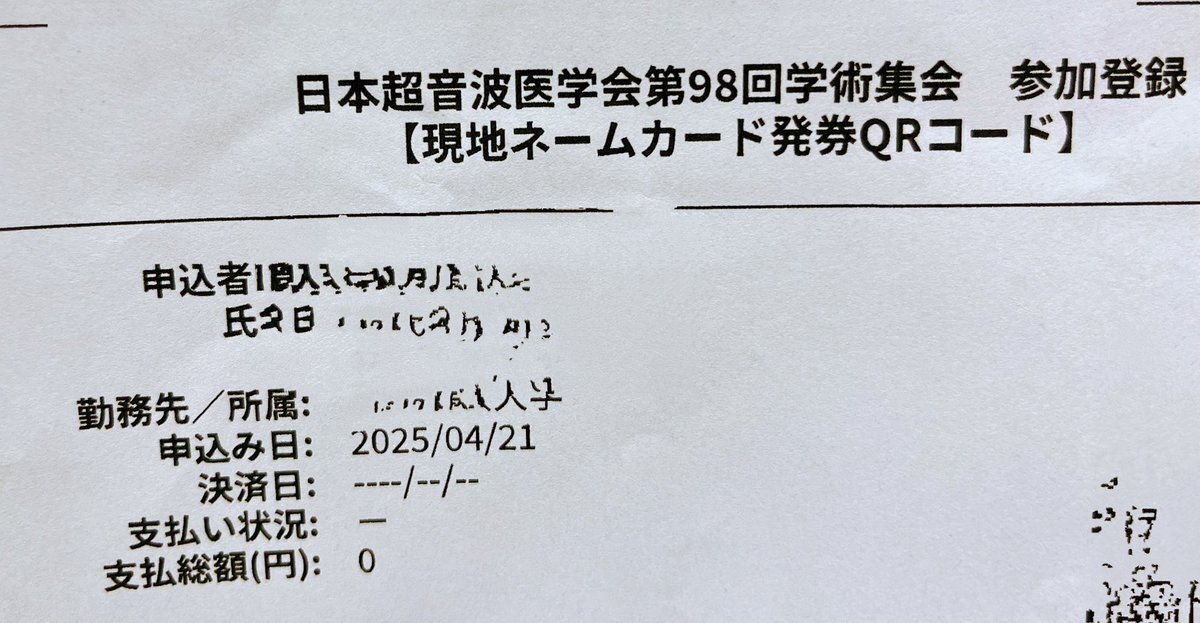 日本超音波医学会第98回学術集会　参加登録
【現地ネームカード発券QRコード】
申込者
氏
勤務先／所属:
申込み日: 2025/04/21
決済日: ----/--/--
支払い状況: ―
支払総額(円): 0